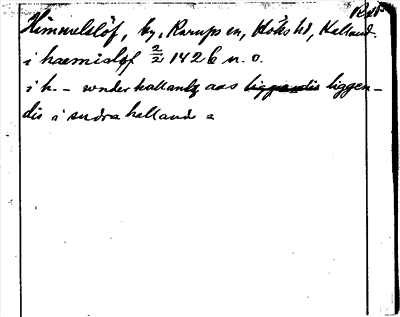 RAP
Himmelslöf, by, Rarups sn, Höks hd, Halland.
i haemisløf 2/2 1426 n. o.
i h. – wnder hallantz aas liggendis liggen–
dis i sudra halland a